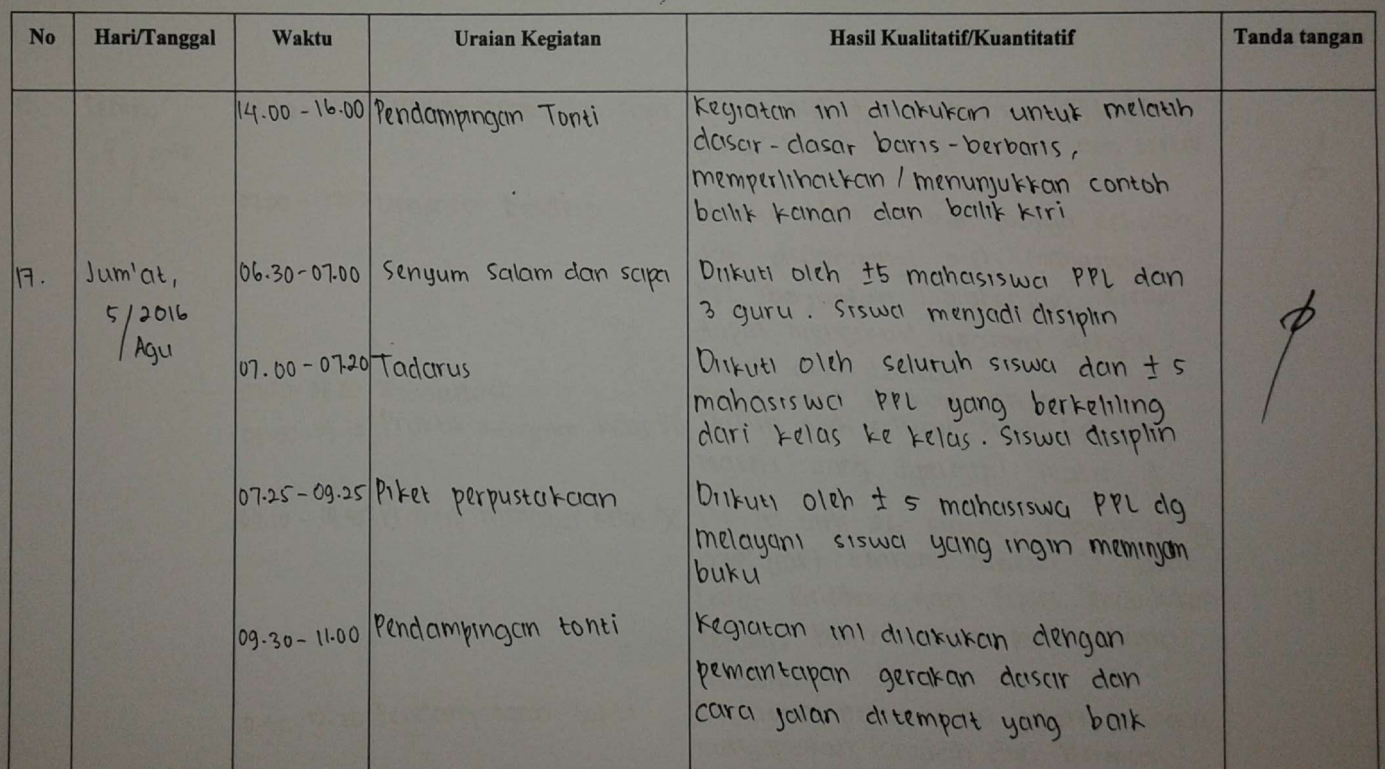 No Hari/Tanggal Waktu Uraian Kegiatan Hasil Kualitatif/Kuantitatif Tanda tangan
14.00 - 16.00 Pendampingan Tonti Kegiatan ini dilakukan untuk melatih
dasar - dasar baris - berbaris,
memperlihatkan / menunjukkan contoh
balik kanan dan balik kiri
17. Jum'at, 06.30 - 07.00 Senyum Salam dan sapa Diikuti oleh ±5 mahasiswa PPL dan
5/2016 3 guru. Siswa menjadi disiplin
/Agu
07.00 - 07.20 Tadarus Diikuti oleh seluruh siswa dan ± 5
mahasiswa PPL yang berkeliling
dari kelas ke kelas. Siswa disiplin
07.25 - 09.25 Piket perpustakaan Diikuti oleh ± 5 mahasiswa PPL dg
melayani siswa yang ingin meminjam
buku
09.30 - 11.00 Pendampingan tonti Kegiatan ini dilakukan dengan
pemantapan gerakan dasar dan
cara jalan ditempat yang baik